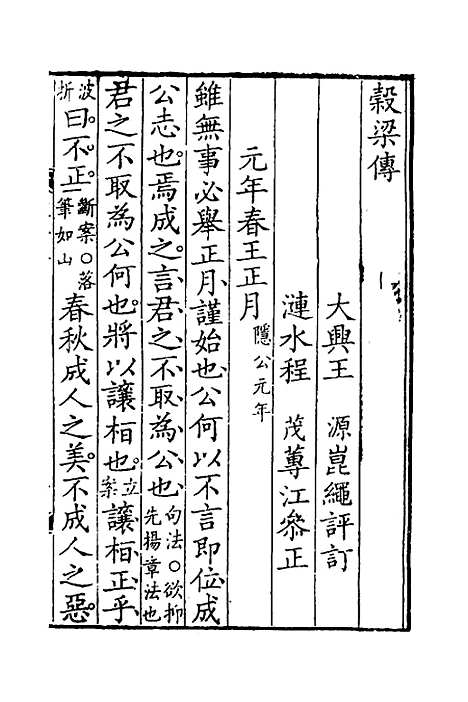 穀梁傳
大興王　源崑繩評訂
漣水程　茂蓴江叅正
元年春王正月隱公元年
雖無事必舉正月謹始也公何以不言即位成
公志也焉成之言君之不取為公也句法○欲抑先揚章法也
君之不取為公何也將以讓桓也立案讓桓正乎
波折曰不正斷案○落筆如山春秋成人之美不成人之惡